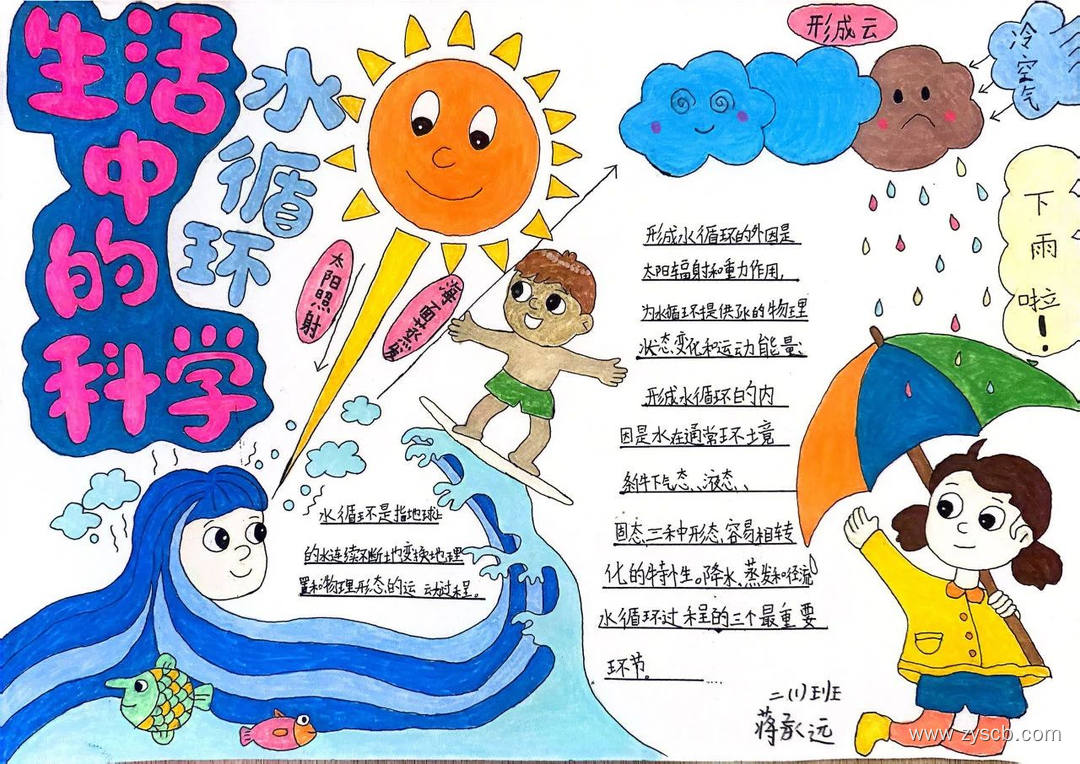 生活
中
的
科学
水
循
环
太阳照射
海面蒸发
形成云
冷空气
下雨啦!
形成水循环的外因是
太阳辐射和重力作用,
为水循环提供了水的物理
状态变化和运动能量;
形成水循环的内
因是水在通常环境
条件下气态、液态、
固态、三种形态,容易相转
化的特性。降水、蒸发和径流
水循环过程的三个最重要
环节。
水循环是指地球上
的水连续不断地变换地理
置和物理形态的运动过程。
二(1)班
蒋承远
www.zyscb.com